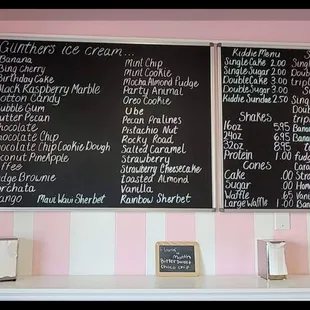 Gunthers ice cream...
Banana
Bing Cherry
Birthday Cake
Black Raspberry Marble
Cotton Candy
Bubble Gum
Butter Pecan
Chocolate
Chocolate Chip
Chocolate Chip Cookie Dough
Coconut Pineapple
Coffee
Fudge Brownie
Horchata
Maui Wave Sherbet
Mint Chip
Mint Cookie
Mocha Almond Fudge
Party Animal
Oreo Cookie
Ube
Pecan Pralines
Pistachio Nut
Rocky Road
Salted Caramel
Strawberry
Strawberry Cheesecake
Toasted Almond
Vanilla
Rainbow Sherbet
Kiddie Menu
Single Cake 2.00
Single Sugar 2.00
Double Sugar 3.00
Kiddie Sundae 2.50
Shakes
16oz 5.95
24oz 6.95
32oz 8.95
Protein 1.00
Cones
Cake .00
Sugar .00
Waffle .65
Large Waffle 1.00
month
Bittersweet
Choc Chip